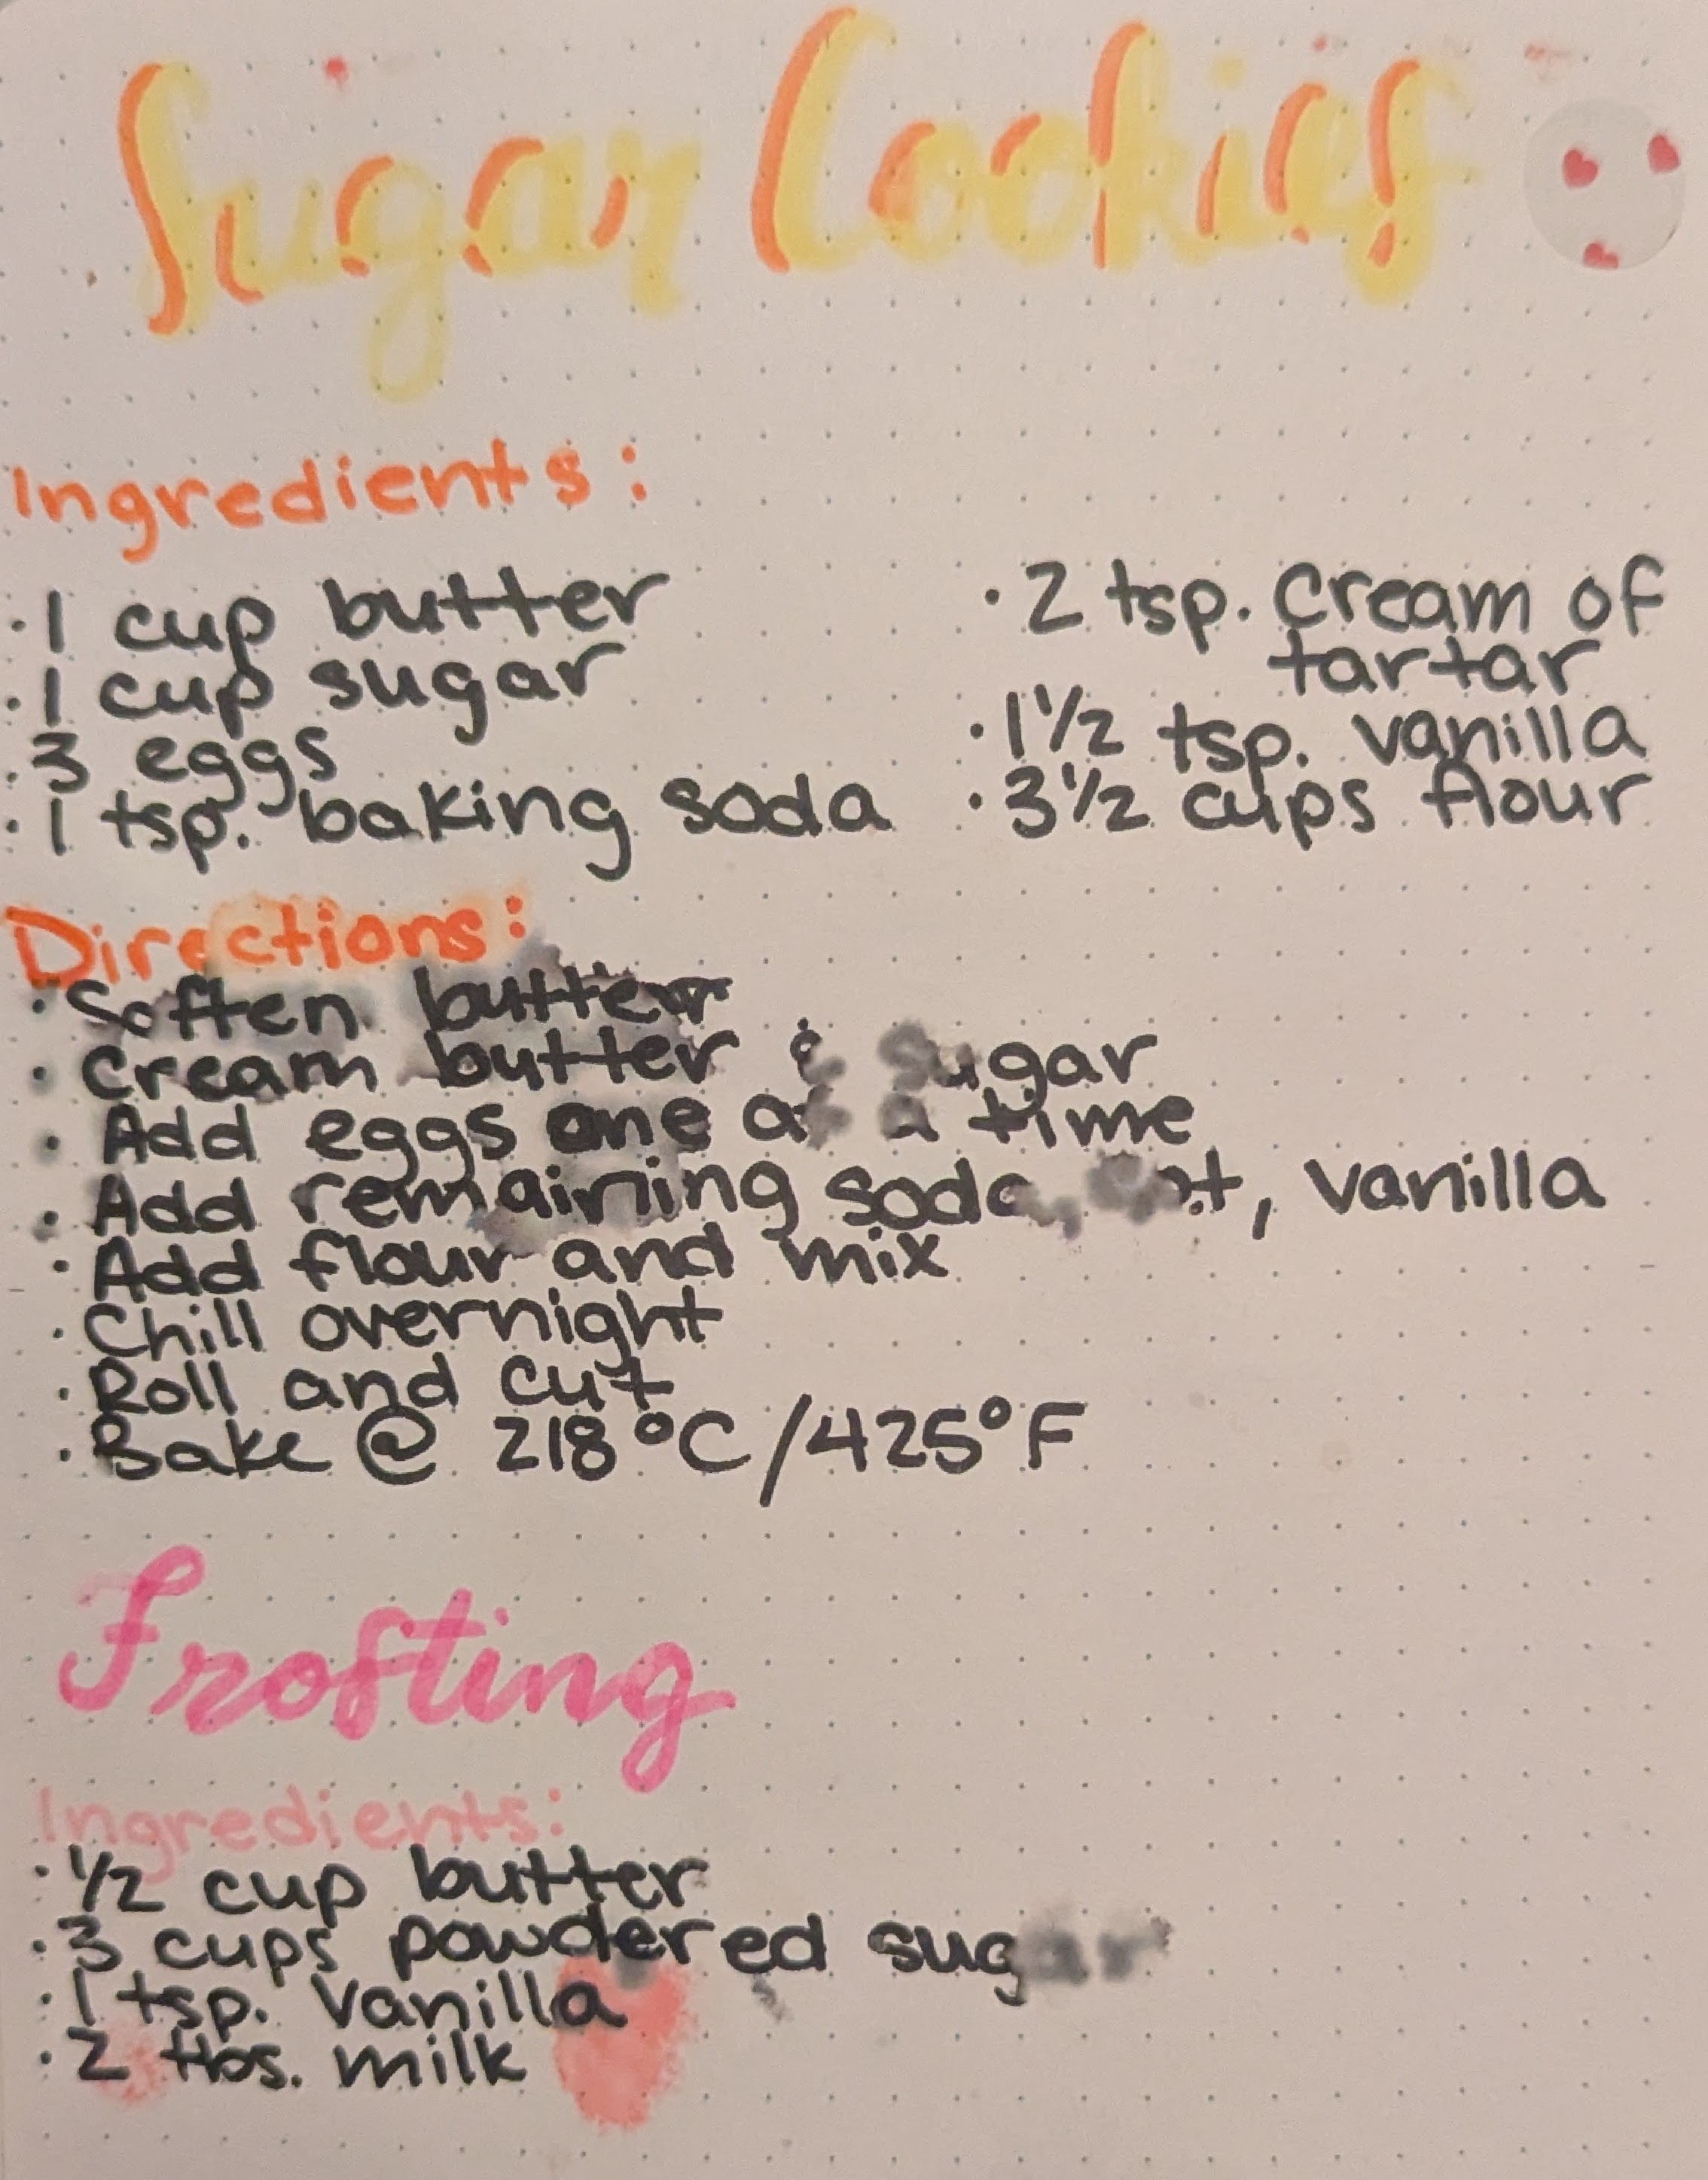 Sugar Cookies
Ingredients:
·1 cup butter
·1 cup sugar
·3 eggs
·1 tsp. baking soda
·2 tsp. cream of
tartar
·1½ tsp. vanilla
·3½ cups flour
Directions:
·Soften butter
·Cream butter & sugar
·Add eggs one at a time
·Add remaining soda, vanilla
·Add flour and mix
·Chill overnight
·Roll and cut
·Bake @ 218°C/425°F
Frosting
Ingredients:
·½ cup butter
·3 cups powdered sugar
·1 tsp. vanilla
·2 tbs. milk